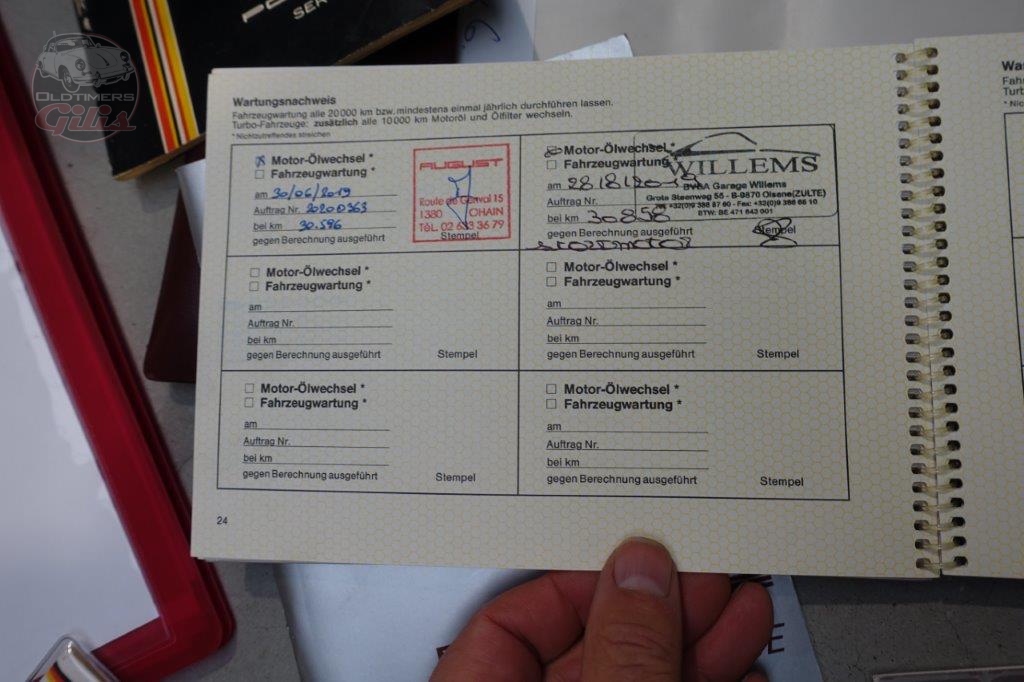 OLDTIMERS
Gilis
SER
Wartungsnachweis
Fahrzeugwartung alle 20000 km bzw. mindestens einmal jährlich durchführen lassen.
Turbo-Fahrzeuge: zusätzlich alle 10000 km Motoröl und Ölfilter wechseln.
* Nichtzutreffendes streichen
Motor-Ölwechsel *
Fahrzeugwartung *
am 30/06/2019
Auftrag Nr. 20200363
bei km 30.596
gegen Berechnung ausgeführt
AUGUST
Route de 15
1380 OHAIN
Tél. 02 633 36 79
Stempel
Motor-Ölwechsel *
Fahrzeugwartung
am 28/8/2019
Auftrag Nr.
bei km 30.858
gegen Berechnung ausgeführt
startmotor
WILLEMS
BVBA Garage Willems
Grote Steenweg 55 - B-9870 Olsene(ZULTE)
Tel. +32(0)9 388 87 60 - Fax: +32(0)9 388 66 10
BTW: BE 471 642 001
Stempel
Motor-Ölwechsel *
Fahrzeugwartung *
am
Auftrag Nr.
bei km
gegen Berechnung ausgeführt
Stempel
Motor-Ölwechsel *
Fahrzeugwartung *
am
Auftrag Nr.
bei km
gegen Berechnung ausgeführt
Stempel
Motor-Ölwechsel *
Fahrzeugwartung *
am
Auftrag Nr.
bei km
gegen Berechnung ausgeführt
Stempel
Motor-Ölwechsel *
Fahrzeugwartung *
am
Auftrag Nr.
bei km
gegen Berechnung ausgeführt
Stempel
24